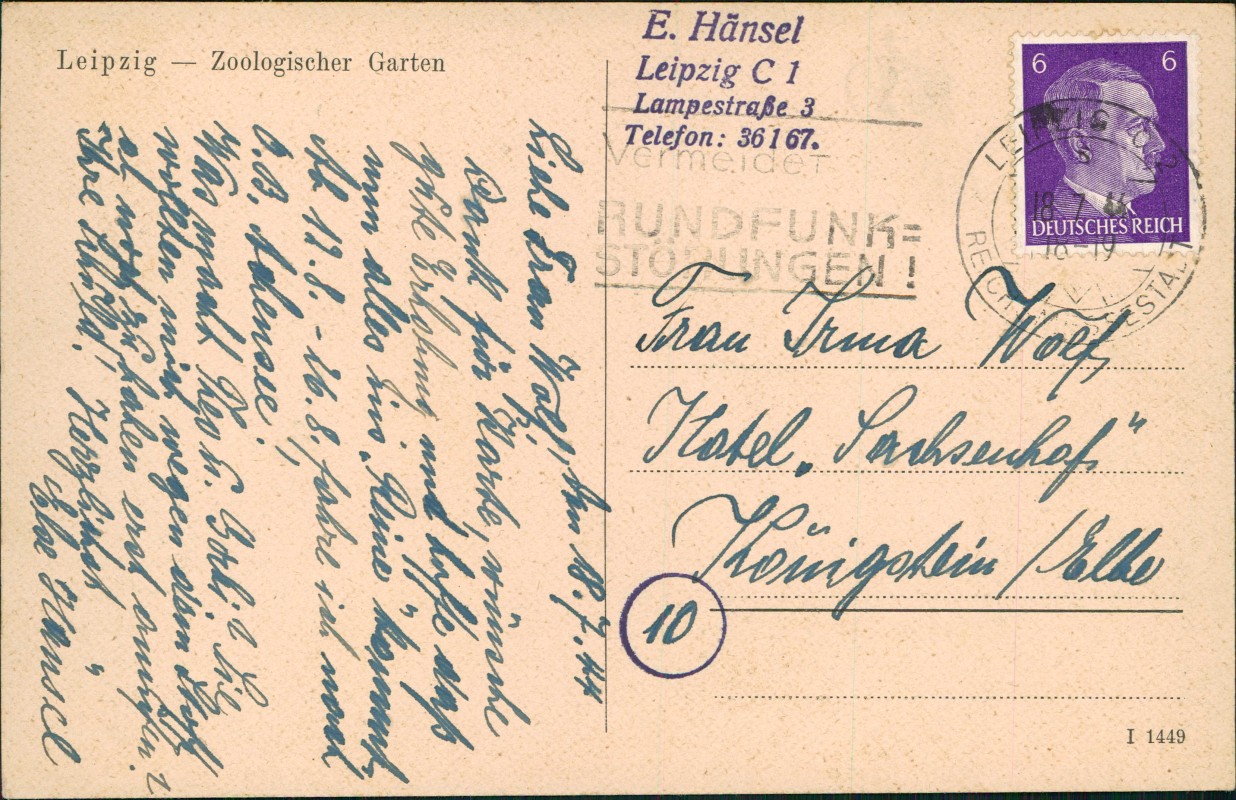 Leipzig — Zoologischer Garten
E. Hänsel
Leipzig C 1
Lampestraße 3
Telefon: 36167.
Vermeidet
RUNDFUNK=
STÖRUNGEN!
6 6
DEUTSCHES REICH
LEIPZIG C 2
18.7.44
18-19
REICHSMESSESTADT
Frau Irma Wolf,
Hotel „Sachsenhof"
Königstein/Elbe
10
I 1449
Am 18.7.44
Liebe Frau Wolf,
Dank für Karte, wünsche
gute Erholung und hoffe daß
nun alles ins „Reine" kommt,
Ab 12.8. - 26.8. fahre ich nach
was macht
wollten mir wegen dem Stoff
erst
Ihre Herzlichst
Else Hänsel